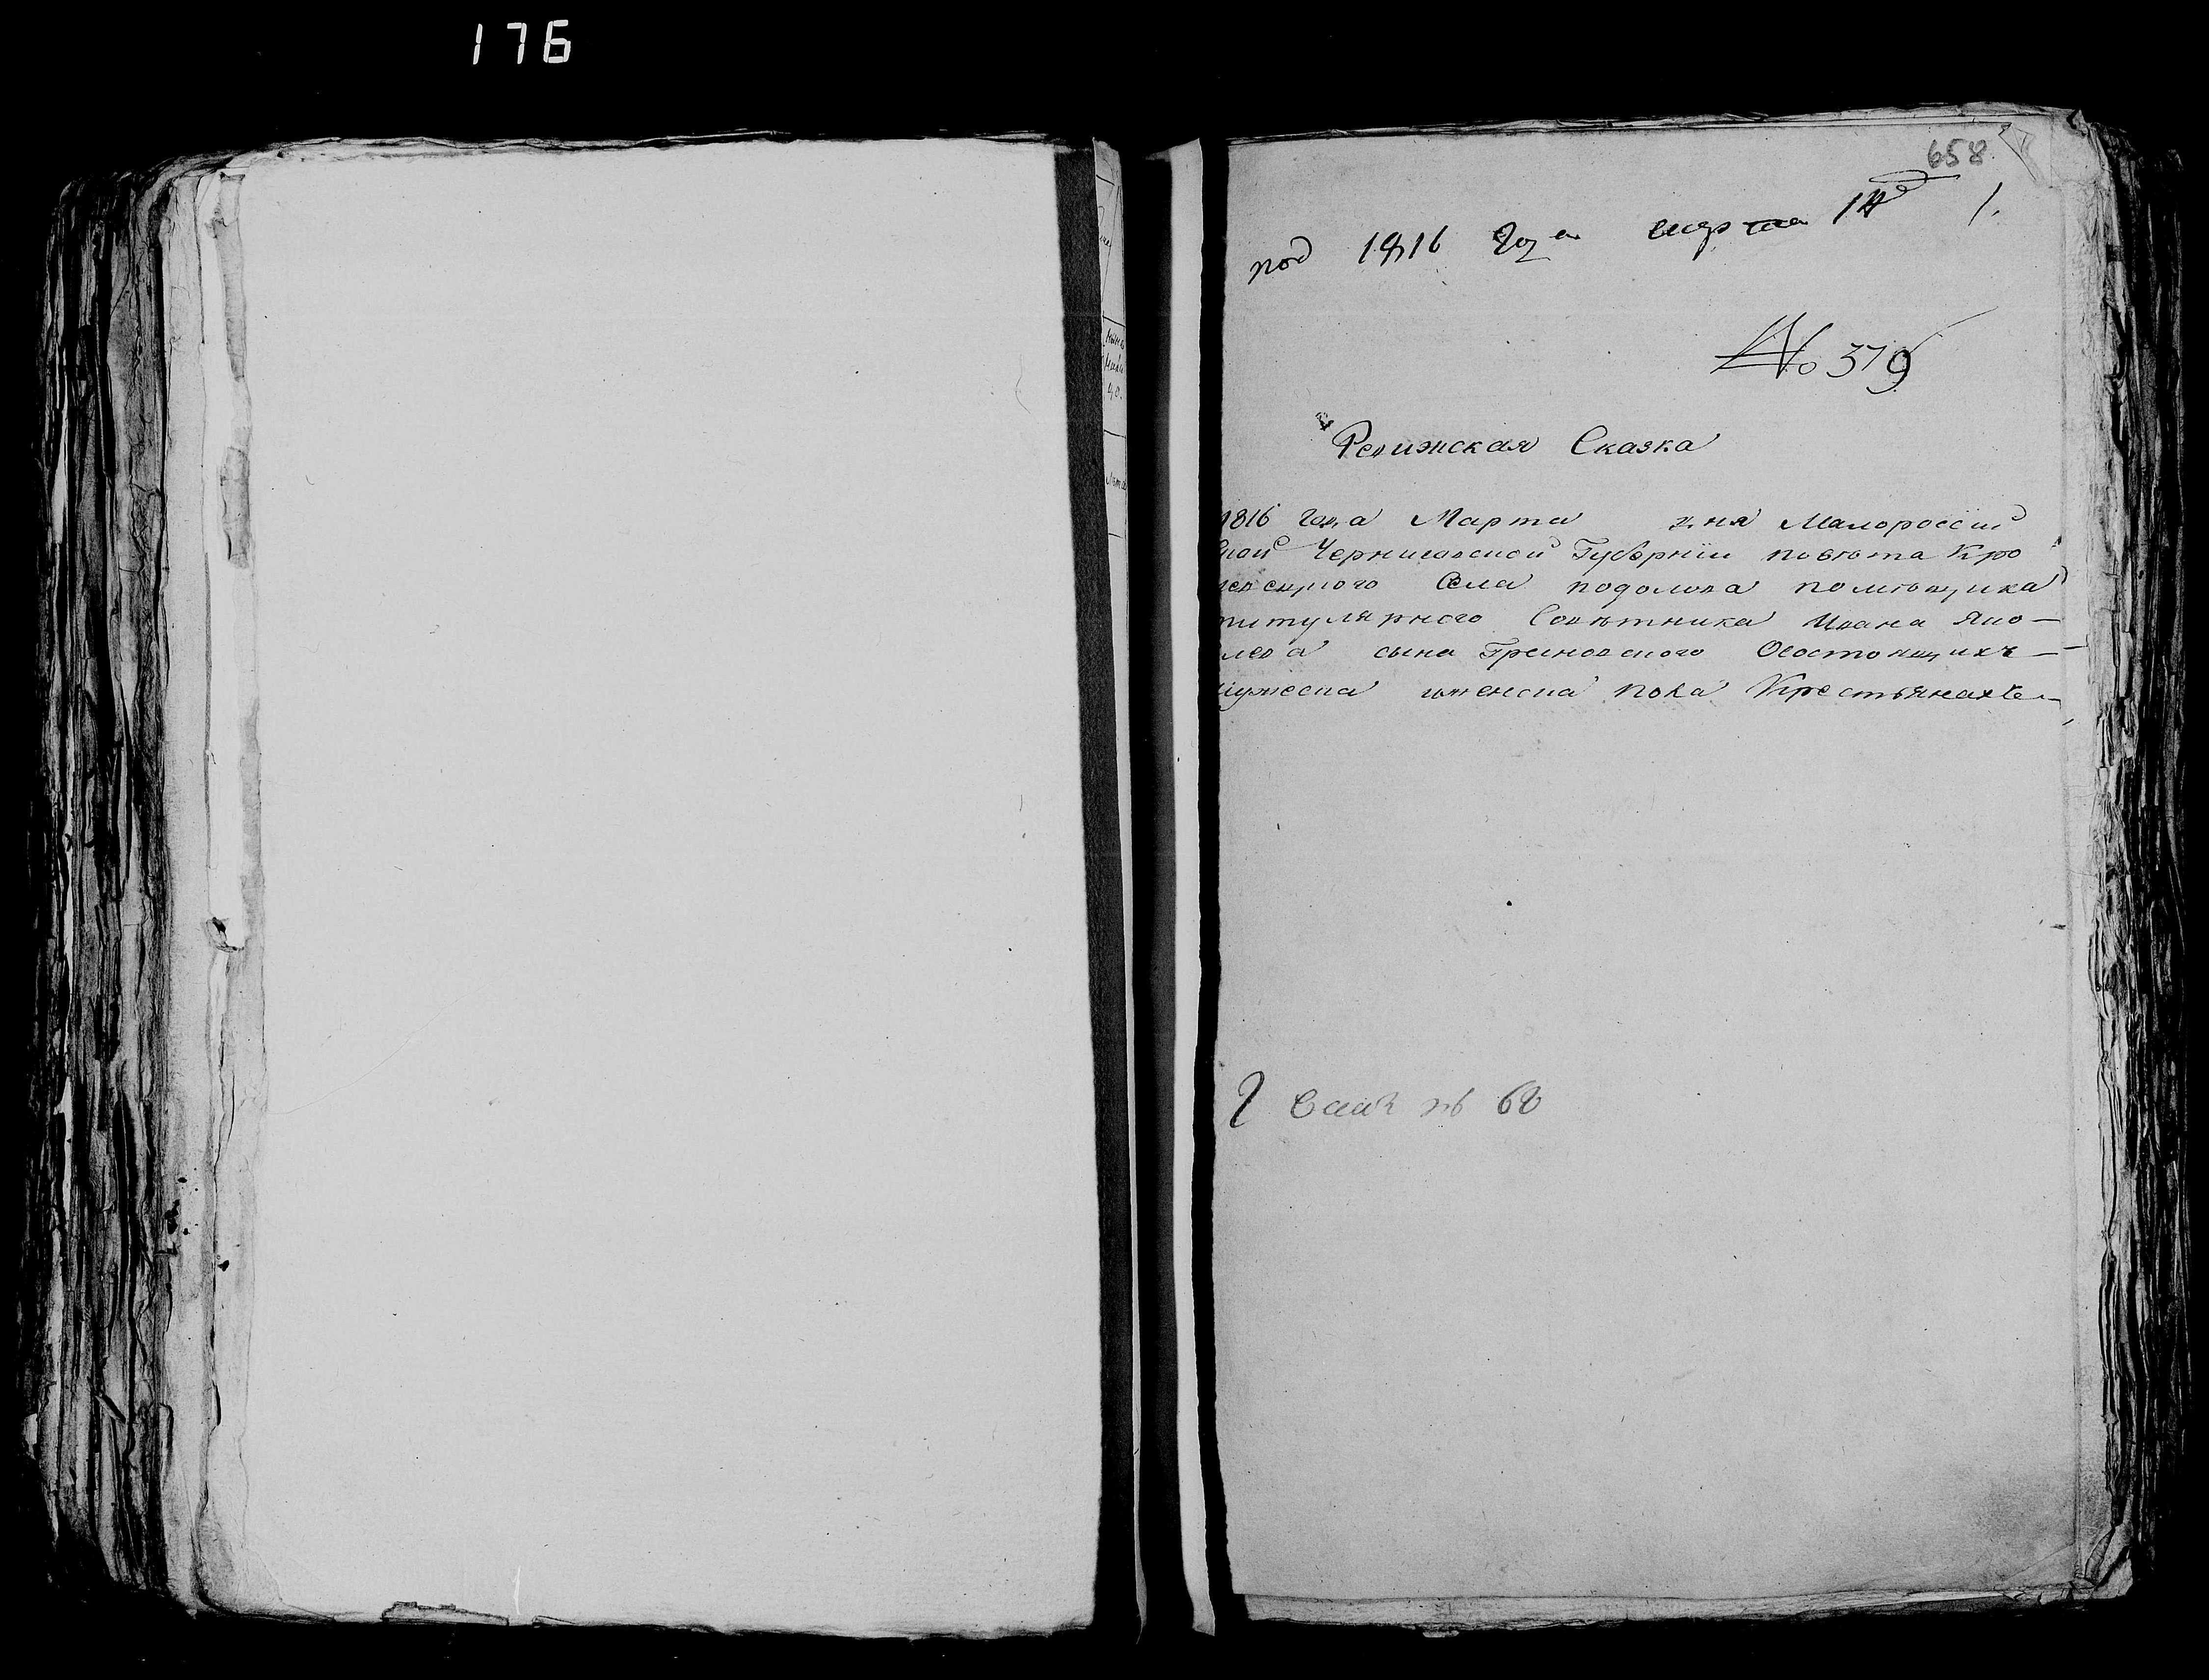 176
658
1.
под 1816 года марта 14
№ 379
Ревижская Сказка
1816 года Марта дня Малороссий
ской Черниговской Губернiи повѣта Кро
левецкого Села подолова помѣщика
титулярного Совѣтника Ивана Яко—
лева сына Грановского Осостоящихъ—
мужеска иженска пола Крестьянахъ